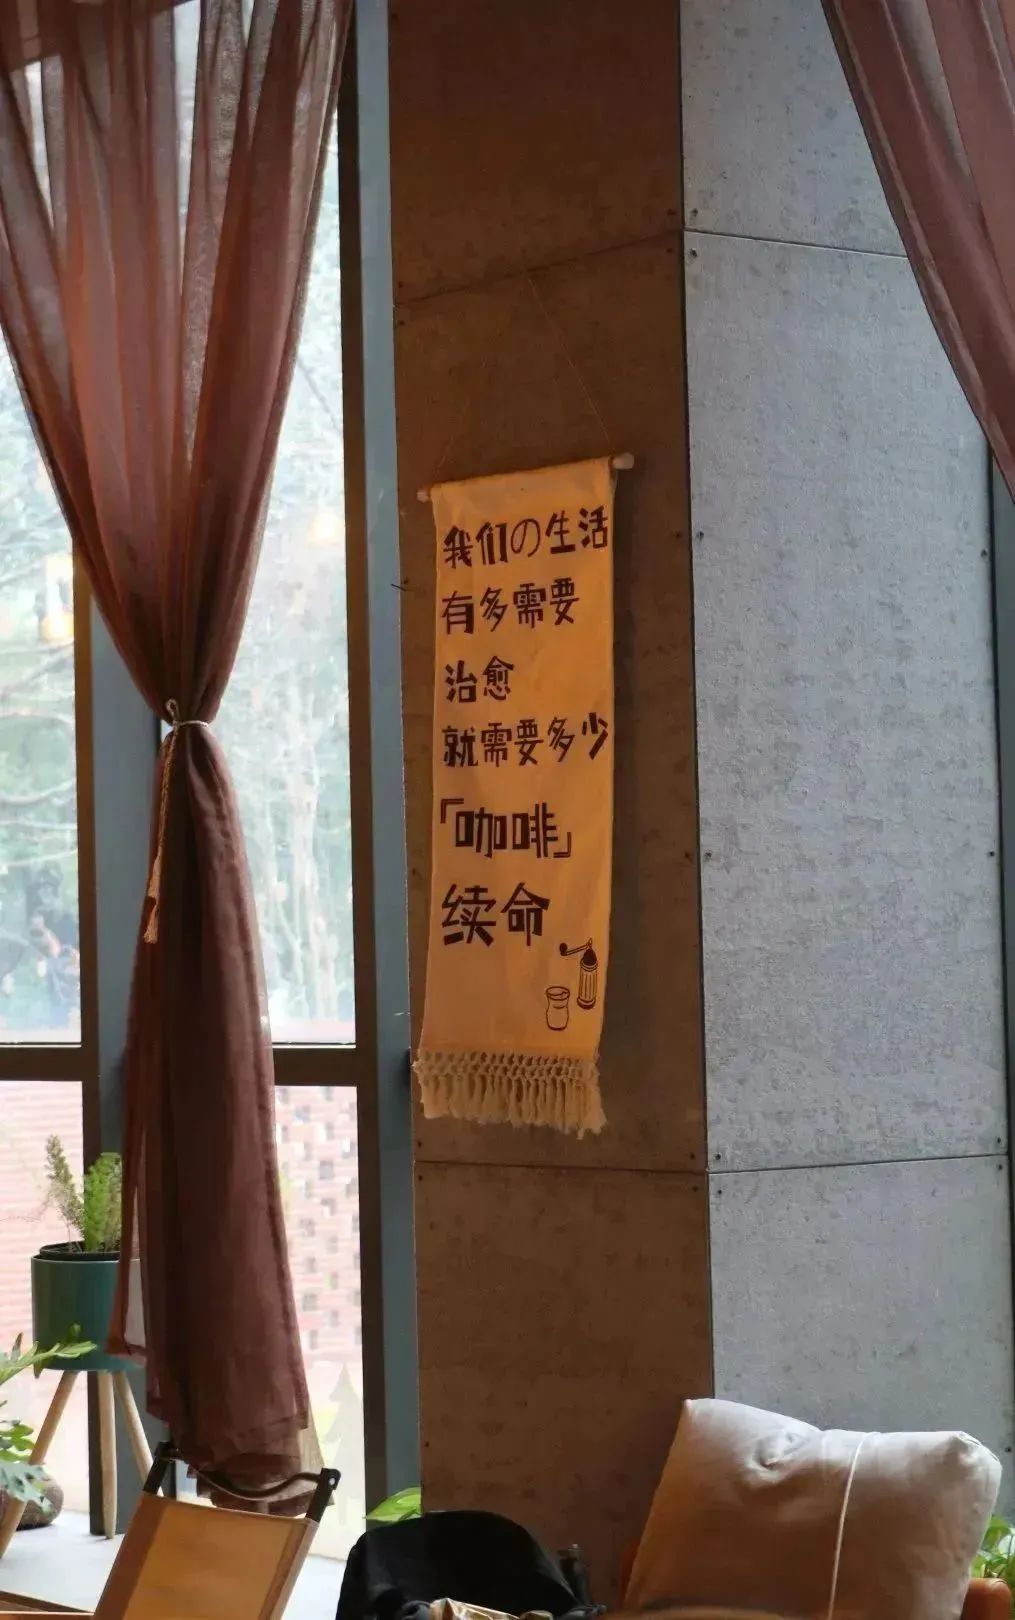 我们の生活
有多需要
治愈
就需要多少
「咖啡」
续命